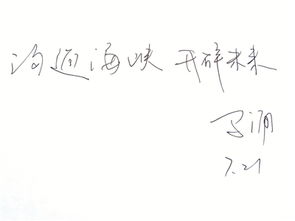 沟通海峡 开辟未来
7.21